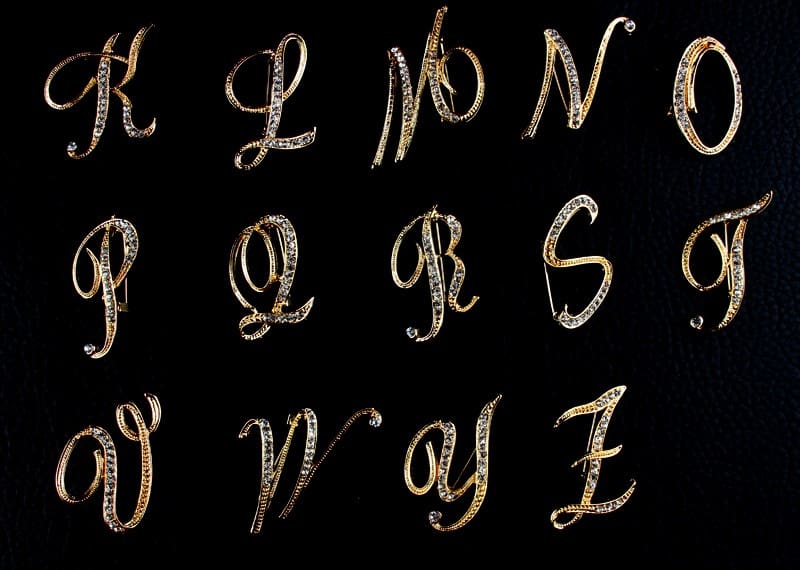 K L M N O
P Q R S T
V W Y Z